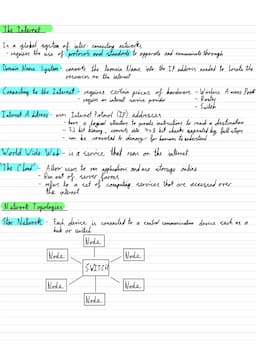 The Internet
Is a global system of inter-connecting networks
- requires the use of protocols and standards to opperate and communicate through
Domain Name System - converts the Domain Name into the IP address needed to locate the
resources on the internet
Connecting to the Internet - requires certain pieces of hardware - Wireless Access Point
- require an internet service provider - Router
- Switch
Internet Address - uses Internet Protocol (IP) addresses
- have a logical structure to provide instructions to reach a destination
- 32 bit binary, converts into 4x8 bit chunks separated by full stops
- can be converted to denary for humans to understand
World Wide Web - is a service that runs on the internet
The Cloud - Allow users to run applications and use storage online
- Run out of server farms
- refers to a set of computing services that are accessed over
the internet
Network Topologies
Star Network - Each device is connected to a central communication device such as a
hub or switch
Node
Node
Node
SWITCH
Node
Node
Node